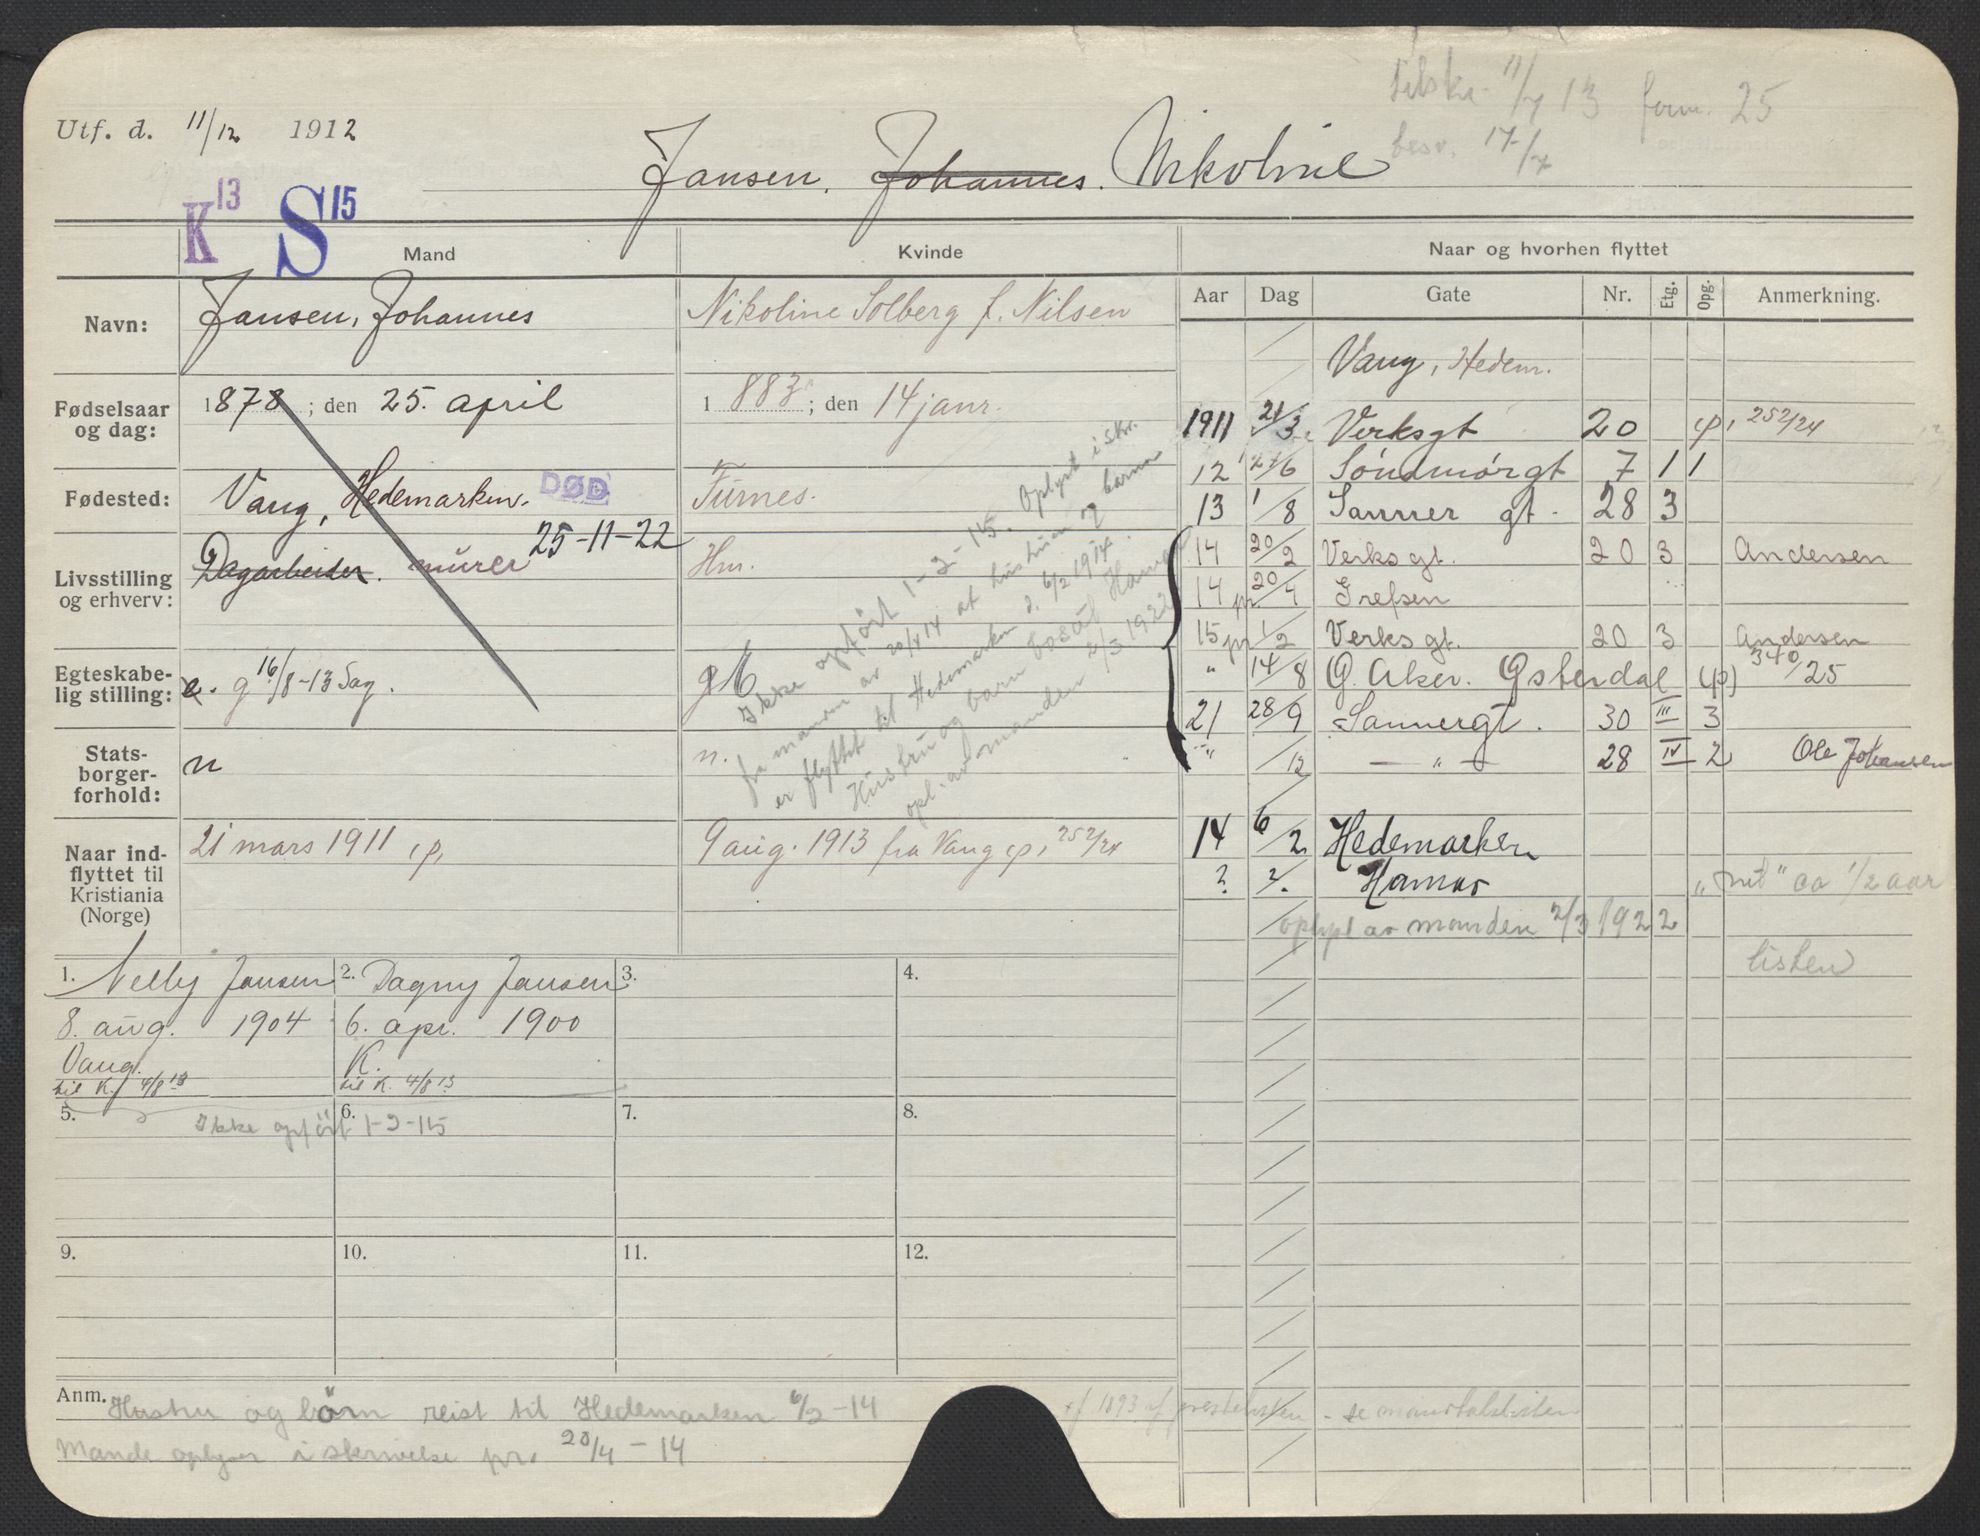 Utf. d. 11/12 1912
tilskr. 11/7 13 form. 25
besv. 17/7
Jansen, Johannes. Nikoline
K 13 S 15
Mand
Kvinde
Naar og hvorhen flyttet
Navn:
Jansen, Johannes
Nikoline Solberg f. Nilsen
Fødselsaar og dag:
1878; den 25. april
1883; den 14 janr.
Fødested:
Vang, Hedemarken.
DØD
25-11-22
Furnes.
Livsstilling og erhverv:
Dagarbeider. murer
Hm.
Egteskabelig stilling:
e. g 16/8-13 Sag.
g
Statsborgerforhold:
n
n.
Naar indflyttet til Kristiania (Norge)
21 mars 1911 ,p,
9 aug. 1913 fra Vang ,p, 252/24
Ikke opført 1-2-15. Oplyst i skr.
fra manden av 20/4 14 at hustruen og barna
er flyttet til Hedemarken d. 6/2 1914.
Hustru og barn bosat Hamar
opl. av manden 2/3 1922
Aar Dag Gate Nr. Etg. Opg. Anmerkning.
Vang, Hedem.
1911 21/3 Verksgt 20 ,p, 252/24
12 27/6 Søndmørgt 7 1 1
13 1/8 Sanner gt. 28 3
14 20/2 Verks gt. 20 3 Andersen
14 pr 20/4 Grefsen
15 pr 1/2 Verks gt. 20 3 Andersen
" 14/8 Ø. Aker. Østerdal (p) 340/25
21 28/9 Sannergt. 30 III 3
" /12 — " — 28 IV 2 Ole Johansen
14 6/2 Hedemarken
? ?. Hamar ca 1/2 aar
oplyst av manden 2/3 1922
listen
1. Nelly Jansen
8. aug. 1904
Vang.
til K. 4/8 13
2. Dagny Jansen
6. apr. 1900
K.
til K. 4/8 13
3.
4.
5.
Ikke opført 1-2-15
6.
7.
8.
9.
10.
11.
12.
Anm. Hustru og børn reist til Hedemarken 6/2-14
Mande oplyser i skrivelse pr. 20/4-14
1893 - se mandtalslisten